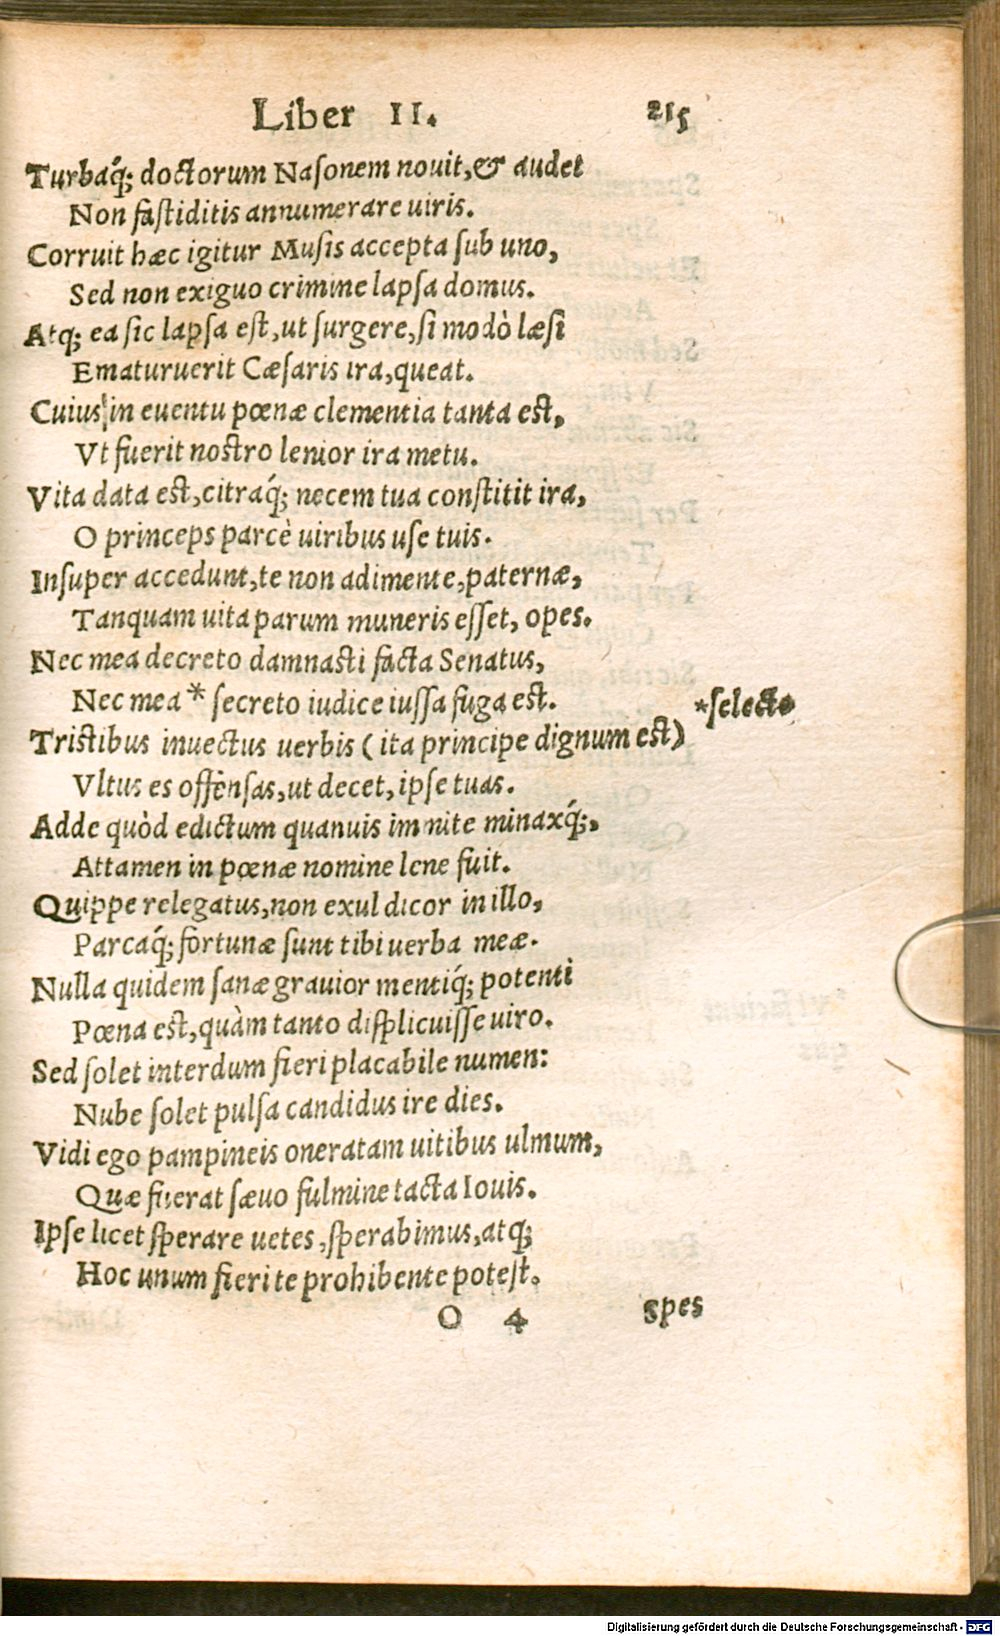 Liber II. 215
Turbaq́; doctorum Nasonem nouit, & audet
Non fastiditis annumerare uiris.
Corruit hæc igitur Musis accepta sub uno,
Sed non exiguo crimine lapsa domus.
Atq; ea sic lapsa est, ut surgere, si modò læsi
Ematuruerit Cæsaris ira, queat.
Cuius in euentu pœnæ clementia tanta est,
Vt fuerit nostro lenior ira metu.
Vita data est, citraq́; necem tua constitit ira,
O princeps parcè uiribus use tuis.
Insuper accedunt, te non adimente, paternæ,
Tanquam uita parum muneris esset, opes.
Nec mea decreto damnasti facta Senatus,
Nec mea * secreto iudice iussa fuga est.
*selecto
Tristibus inuectus uerbis (ita principe dignum est)
Vltus es offensas, ut decet, ipse tuas.
Adde quòd edictum quanuis immite minaxq́;,
Attamen in pœnæ nomine lene fuit.
Quippe relegatus, non exul dicor in illo,
Parcaq́; fortunæ sunt tibi uerba meæ.
Nulla quidem sanæ grauior mentiq́; potenti
Pœna est, quàm tanto displicuisse uiro.
Sed solet interdum fieri placabile numen:
Nube solet pulsa candidus ire dies.
Vidi ego pampineis oneratam uitibus ulmum,
Quæ fuerat sæuo fulmine tacta Iouis.
Ipse licet sperare uetes, sperabimus, atq;
Hoc unum fieri te prohibente potest.
O 4 spes
Digitalisierung gefördert durch die Deutsche Forschungsgemeinschaft - DFG